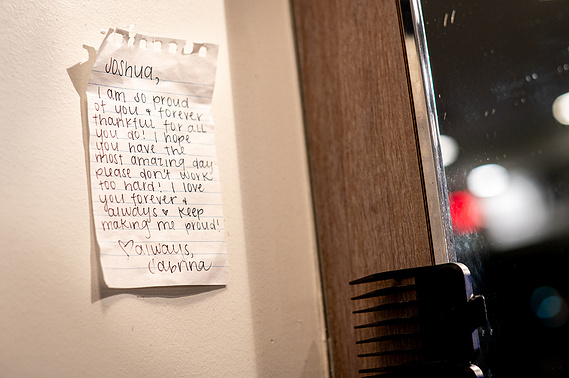 Joshua,
I am so proud
of you & forever
thankful for all
you do! I hope
you have the
most amazing day
please don't work
too hard! I love
you forever &
always ♥ keep
making me proud!
♡always,
Cabrina